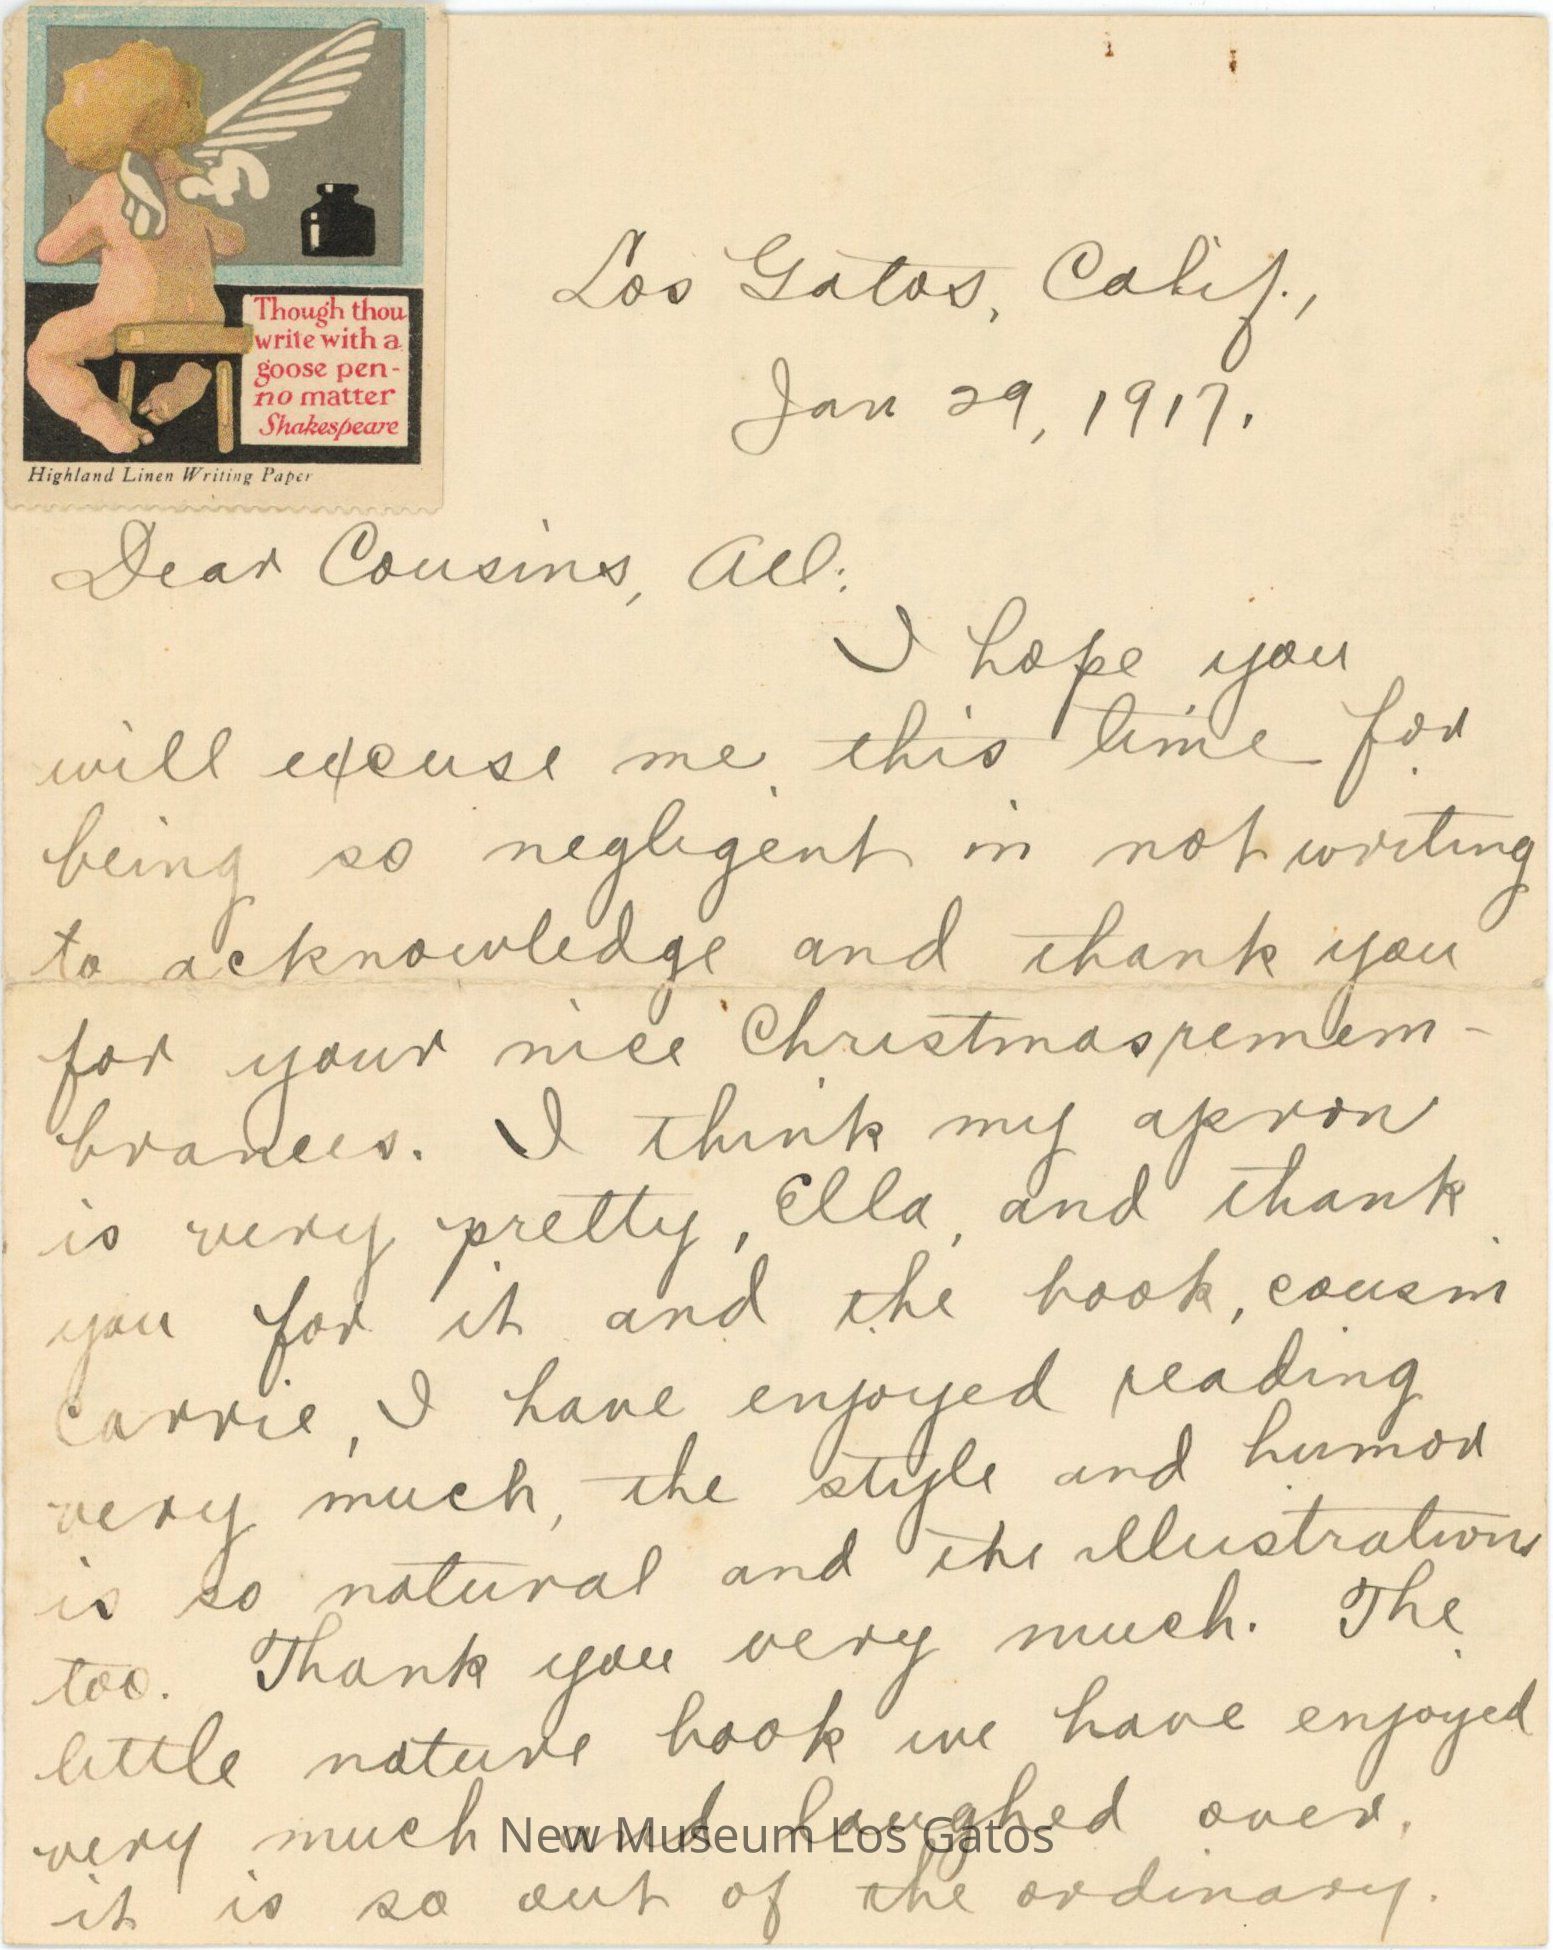 Though thou
write with a
goose pen-
no matter
Shakespeare
Highland Linen Writing Paper
Los Gatos, Calif.,
Jan 29, 1917.
Dear Cousins, All:
I hope you
will excuse me this time for
being so negligent in not writing
to acknowledge and thank you
for your nice Christmas remem-
brances. I think my apron
is very pretty, Ella, and thank
you for it and the book, cousin
Carrie, I have enjoyed reading
very much, the style and humor
is so natural and the illustrations
too. Thank you very much. The
little nature book we have enjoyed
very much and laughed over,
it is so out of the ordinary.
New Museum Los Gatos